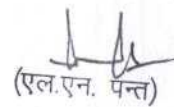 (एल.एन. पन्त)